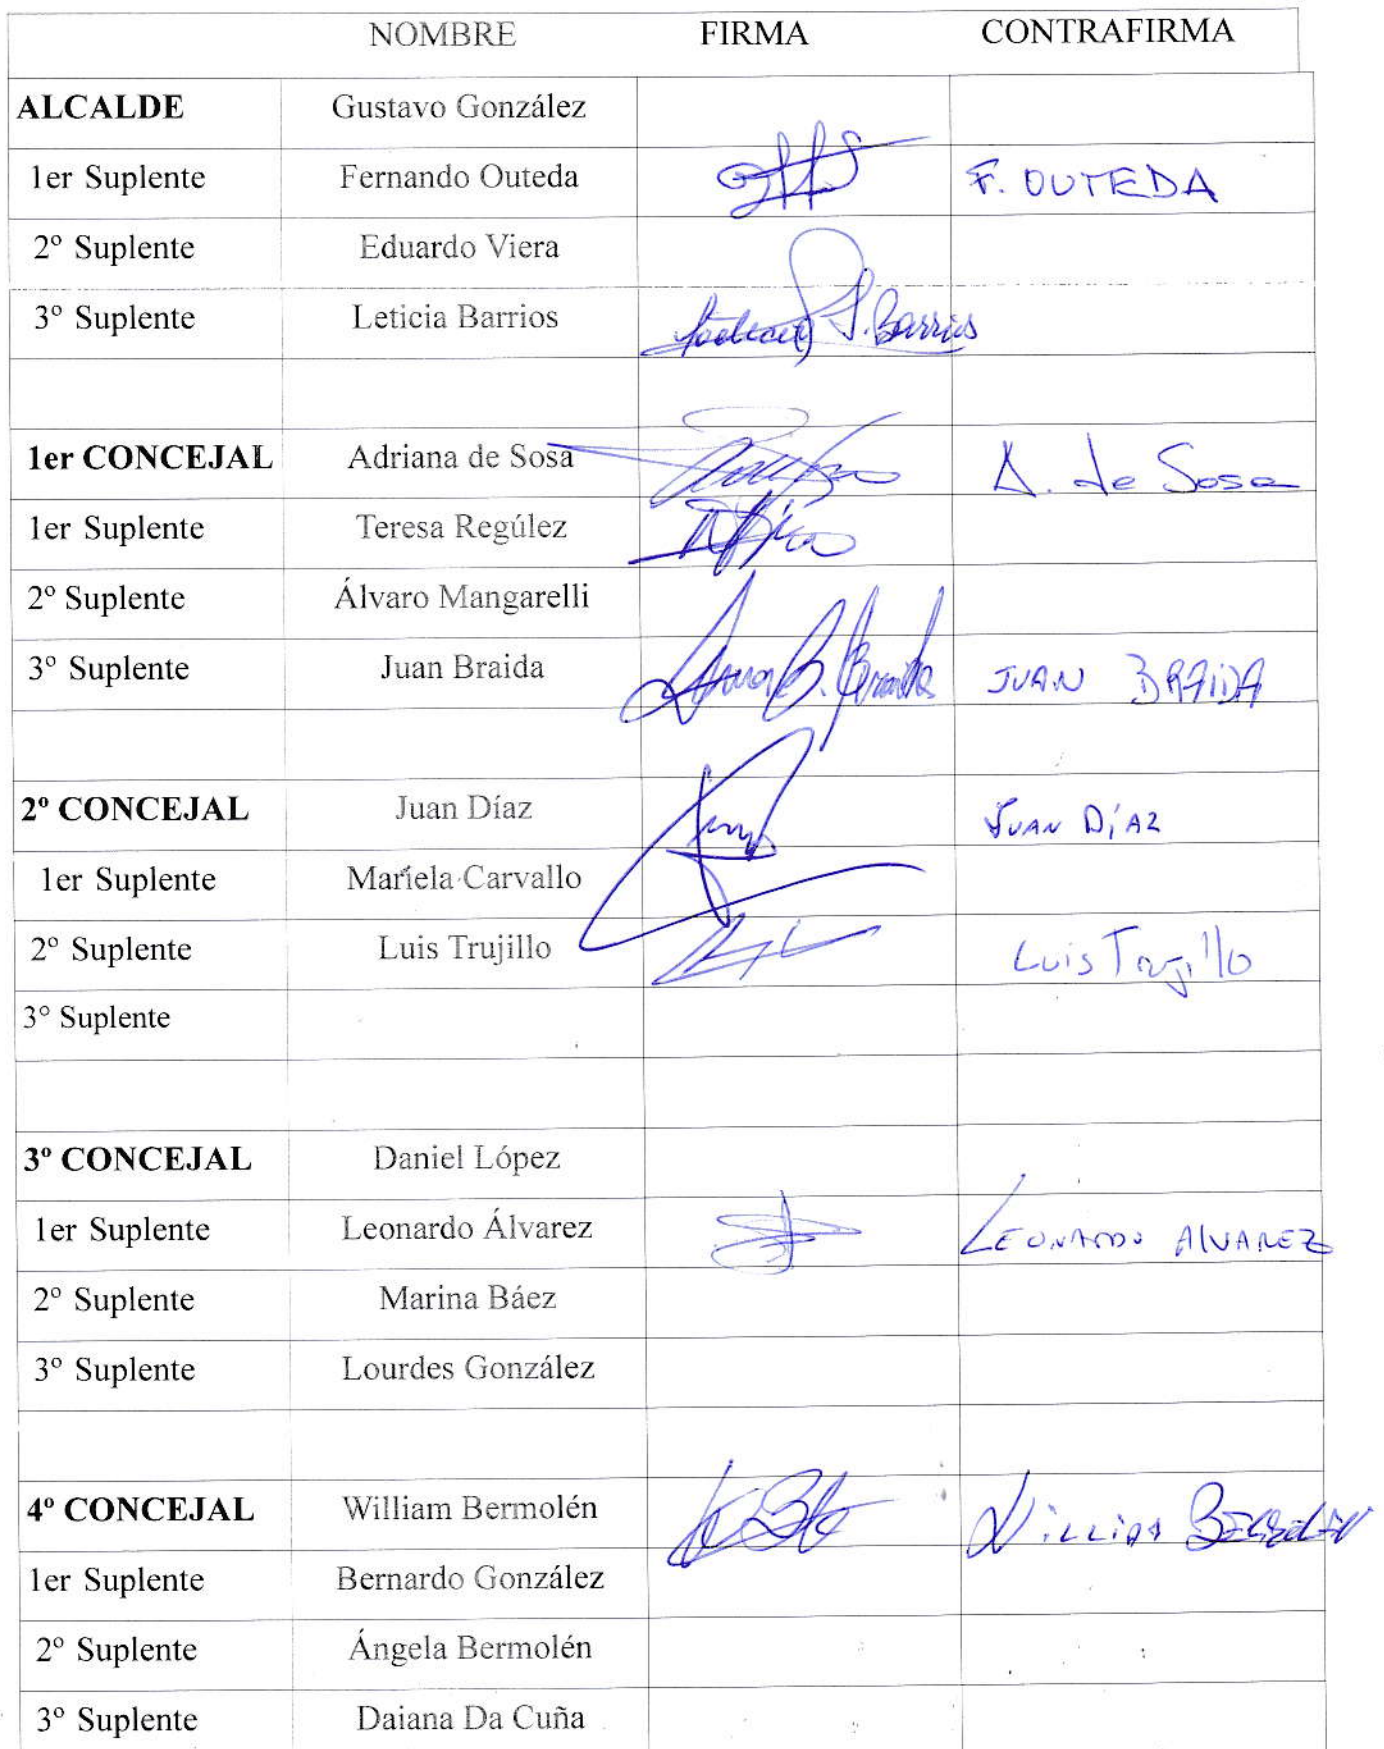 NOMBRE FIRMA CONTRAFIRMA
ALCALDE Gustavo González
1er Suplente Fernando Outeda F. OUTEDA
2º Suplente Eduardo Viera
3º Suplente Leticia Barrios L. Barrios
1er CONCEJAL Adriana de Sosa A. de Sosa
1er Suplente Teresa Regúlez
2º Suplente Álvaro Mangarelli
3º Suplente Juan Braida JUAN BRAIDA
2º CONCEJAL Juan Díaz JUAN DíAZ
1er Suplente Mariela Carvallo
2º Suplente Luis Trujillo Luis Trujillo
3° Suplente
3º CONCEJAL Daniel López
1er Suplente Leonardo Álvarez LEONARDO ALVAREZ
2º Suplente Marina Báez
3º Suplente Lourdes González
4º CONCEJAL William Bermolén
1er Suplente Bernardo González
2º Suplente Ángela Bermolén
3º Suplente Daiana Da Cuña